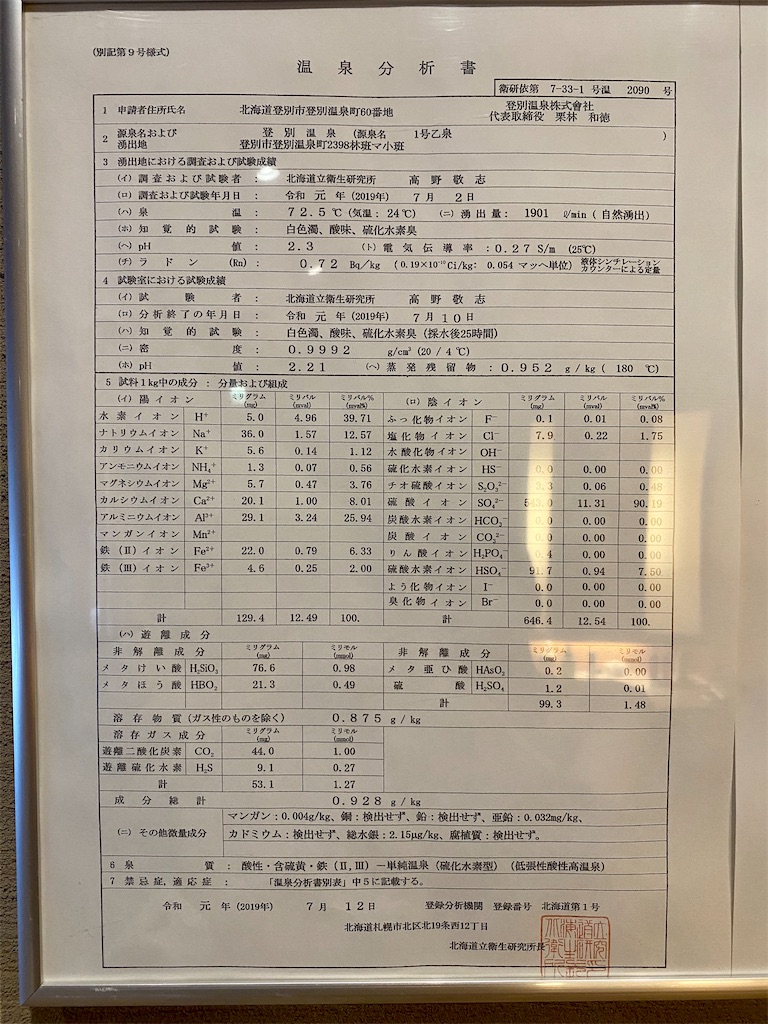 (別記第9号様式)
温泉分析書
衛研依第 7-33-1 号温 2090 号
1 申請者住所氏名 北海道登別市登別温泉町60番地 登別温泉株式會社
代表取締役 栗林 和徳
2 源泉名および 登別温泉 (源泉名 1号乙泉 )
湧出地 登別市登別温泉町2398林班マ小班
3 湧出地における調査および試験成績
(イ) 調査および試験者 : 北海道立衛生研究所 高野敬志
(ロ) 調査および試験年月日 : 令和 元年(2019年) 7月 2日
(ハ) 泉温 : 72.5℃ (気温: 24℃) (ニ) 湧出量: 1901 ℓ/min (自然湧出)
(ホ) 知覚的試験 : 白色濁、酸味、硫化水素臭
(ヘ) pH値 : 2.3 (ト) 電気伝導率 : 0.27 S/m (25℃)
(チ) ラドン (Rn) : 0.72 Bq/kg (0.19×10⁻¹⁰Ci/kg: 0.054 マッヘ単位) 液体シンチレーションカウンターによる定量
4 試験室における試験成績
(イ) 試験者 : 北海道立衛生研究所 高野敬志
(ロ) 分析終了の年月日 : 令和 元年(2019年) 7月10日
(ハ) 知覚的試験 : 白色濁、酸味、硫化水素臭 (採水後25時間)
(ニ) 密度 : 0.9992 g/cm³ (20/4℃)
(ホ) pH値 : 2.21 (ヘ) 蒸発残留物: 0.952 g/kg ( 180 ℃)
5 試料1kg中の成分 : 分量および組成
(イ) 陽イオン ミリグラム(mg) ミリバル(mval) ミリバル%(mval%) (ロ) 陰イオン ミリグラム(mg) ミリバル(mval) ミリバル%(mval%)
水素イオン H⁺ 5.0 4.96 39.71 ふっ化物イオン F⁻ 0.1 0.01 0.08
ナトリウムイオン Na⁺ 36.0 1.57 12.57 塩化物イオン Cl⁻ 7.9 0.22 1.75
カリウムイオン K⁺ 5.6 0.14 1.12 水酸化物イオン OH⁻
アンモニウムイオン NH₄⁺ 1.3 0.07 0.56 硫化水素イオン HS⁻ 0.0 0.00 0.00
マグネシウムイオン Mg²⁺ 5.7 0.47 3.76 チオ硫酸イオン S₂O₃²⁻ 3.3 0.06 0.48
カルシウムイオン Ca²⁺ 20.1 1.00 8.01 硫酸イオン SO₄²⁻ 543.0 11.31 90.19
アルミニウムイオン Al³⁺ 29.1 3.24 25.94 炭酸水素イオン HCO₃⁻ 0.0 0.00 0.00
マンガンイオン Mn²⁺ 炭酸イオン CO₃²⁻ 0.0 0.00 0.00
鉄(Ⅱ)イオン Fe²⁺ 22.0 0.79 6.33 りん酸イオン H₂PO₄⁻ 0.4 0.00 0.00
鉄(Ⅲ)イオン Fe³⁺ 4.6 0.25 2.00 硫酸水素イオン HSO₄⁻ 91.7 0.94 7.50
よう化物イオン I⁻ 0.0 0.00 0.00
臭化物イオン Br⁻ 0.0 0.00 0.00
計 129.4 12.49 100. 計 646.4 12.54 100.
(ハ) 遊離成分
非解離成分 ミリグラム(mg) ミリモル(mmol) 非解離成分 ミリグラム(mg) ミリモル(mmol)
メタけい酸 H₂SiO₃ 76.6 0.98 メタ亜ひ酸 HAsO₂ 0.2 0.00
メタほう酸 HBO₂ 21.3 0.49 硫酸 H₂SO₄ 1.2 0.01
計 99.3 1.48
溶存物質(ガス性のものを除く) 0.875 g/kg
溶存ガス成分 ミリグラム(mg) ミリモル(mmol)
遊離二酸化炭素 CO₂ 44.0 1.00
遊離硫化水素 H₂S 9.1 0.27
計 53.1 1.27
成分総計 0.928 g/kg
(ニ) その他微量成分 マンガン:0.004g/kg、銅:検出せず、鉛:検出せず、亜鉛:0.032mg/kg、
カドミウム:検出せず、総水銀:2.15μg/kg、腐植質:検出せず。
6 泉質 : 酸性・含硫黄・鉄(Ⅱ,Ⅲ)-単純温泉(硫化水素型) (低張性酸性高温泉)
7 禁忌症,適応症 : 「温泉分析書別表」中5に記載する。
令和 元年(2019年) 7月 12日 登録分析機関 登録番号 北海道第1号
北海道札幌市北区北19条西12丁目
北海道立衛生研究所長